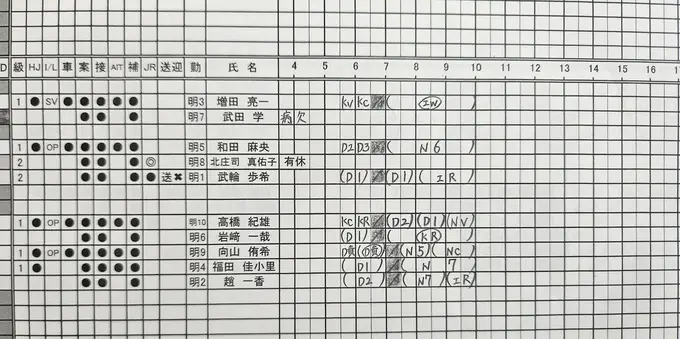 D 級 HJ I/L 車 案 接 AIT 補 JR 送迎 勤 氏 名 4 5 6 7 8 9 10 11 12 13 14 15 16 17
1 ● SV ● ● ● ● ● 明3 増田 亮一 KV KC ( IW )
● ● ● 明7 武田 学 病欠
1 ● OP ● ● ● ● ● 明5 和田 麻央 D2 D3 ( N 6 )
2 ● ● ● ◎ 明8 北庄司 真佑子 有休
2 ● ● ● ● 送 ✖ 明1 武輪 歩希 (D1) (D1) ( IR )
1 ● OP ● ● ● ● ● 明10 高橋 紀雄 KC KR (D2) (D1) (NV)
● ● ● 明6 岩﨑 一哉 (D1) ( KR )
1 ● OP ● ● ● ● ● 明9 向山 侑希 (N5) ( NC )
1 ● ● ● ● ● 明4 福田 佳小里 ( D1 ) ( N 7 )
● ● ● 明2 趙 一香 ( D2 ) ( N7 ) (IR)